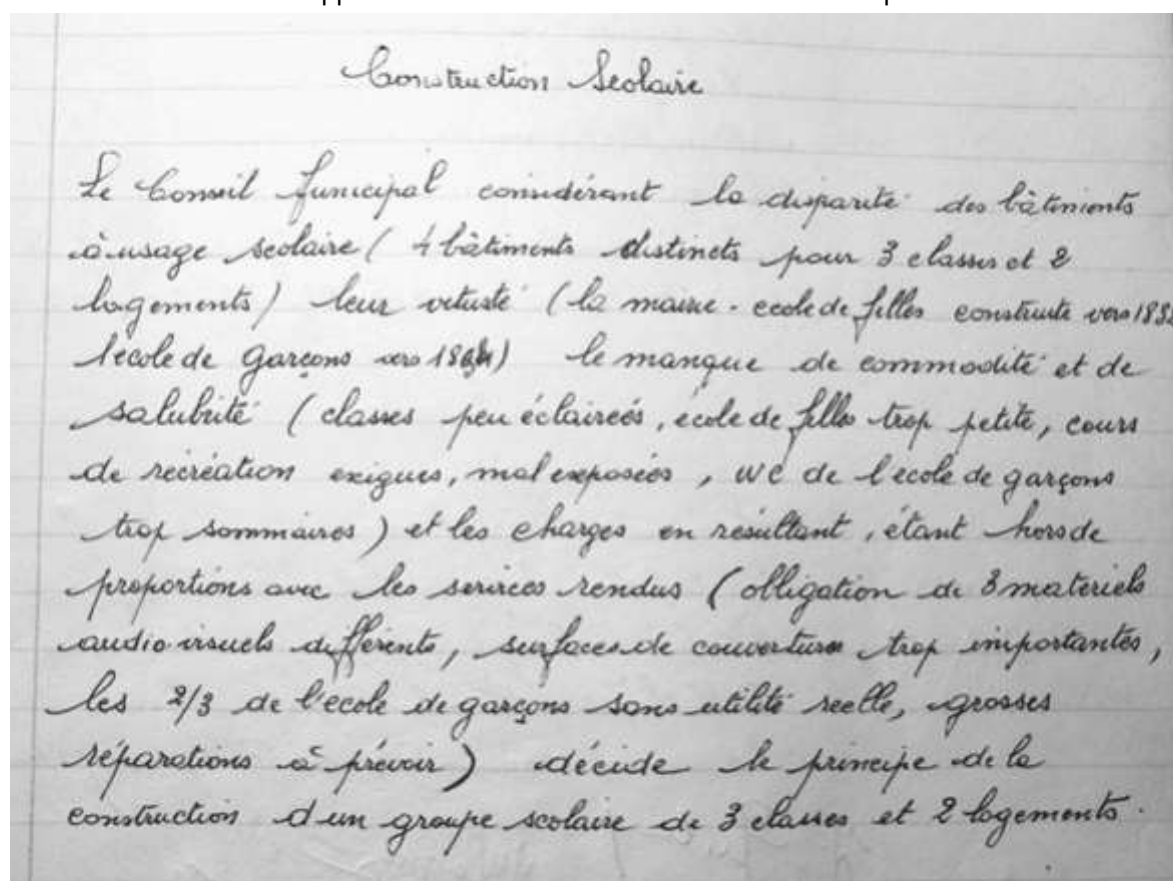 Construction Scolaire
Le Conseil Municipal considérant la disparité des bâtiments
à usage scolaire ( 4 bâtiments distincts pour 3 classes et 2
logements) leur vétusté (la mairie - ecole de filles construite vers
l'ecole de Garçons vers le manque de commodité et de
salubrité (classes peu éclaireés, école de filles trop petite, cours
de récréation exigues, mal exposées, WC de l'ecole de garçons
trop sommaires) et les charges en résultant, étant hors de
proportions avec les services rendus (obligation de 3 materiels
audio-visuels différents, surfaces de couvertures trop importantes,
les 2/3 de l'ecole de garçons sans utilité reelle, grosses
réparations à prévoir) décide le principe de la
construction d'un groupe scolaire de 3 classes et 2 logements.